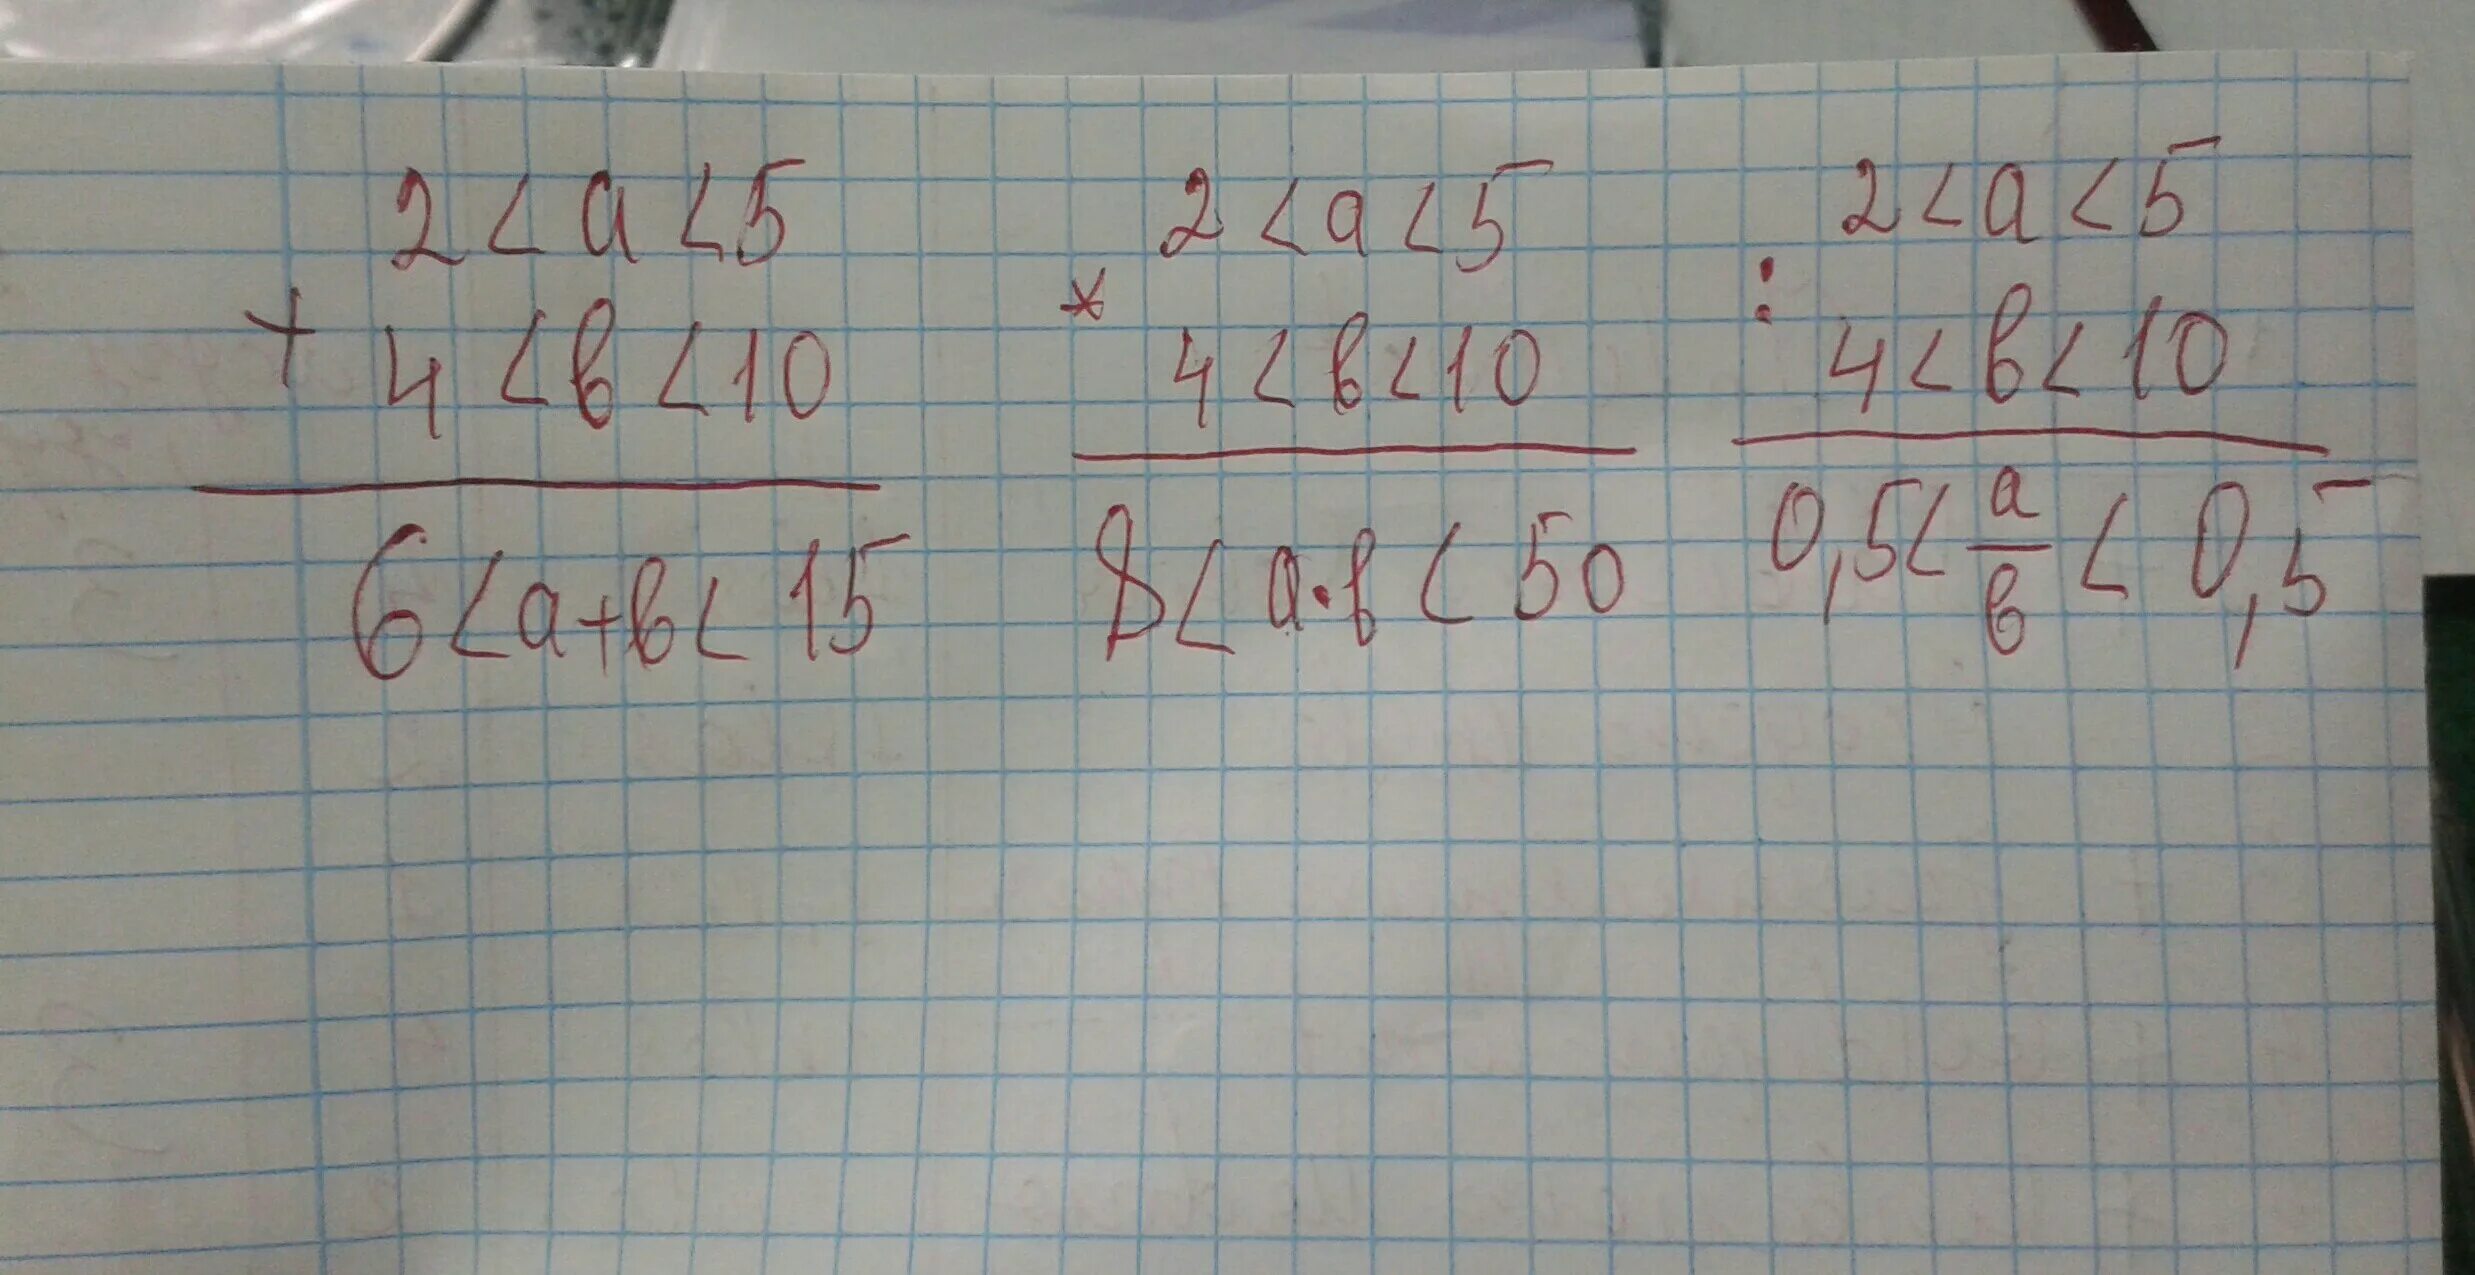 2 < a < 5
+ 4 < в < 10
6 < a + в < 15
2 < a < 5
* 4 < в < 10
8 < a · в < 50
2 < a < 5
: 4 < в < 10
0,5 < a/в < 0,5